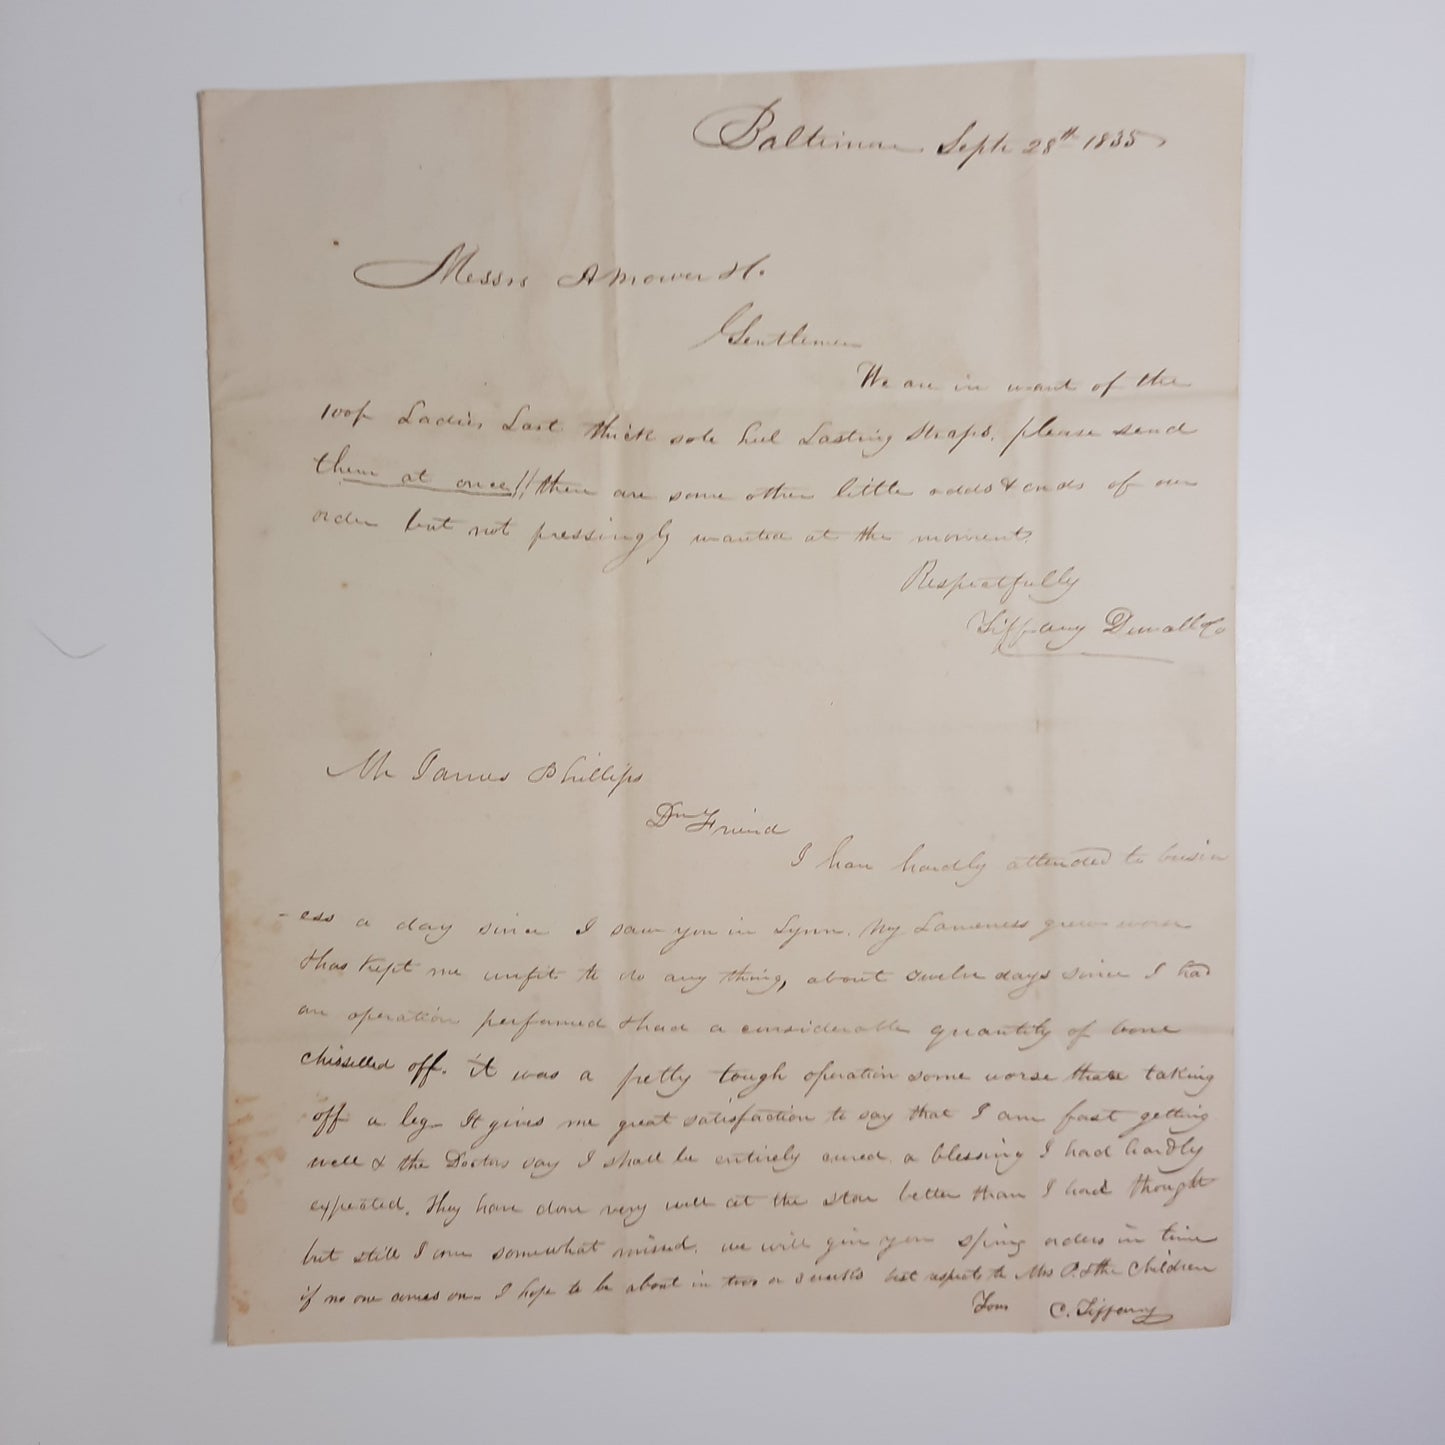 Baltimore Septr 28th 1835
Messrs A Mower
Gentlemen
We are in want of the
100p Ladies Last thick sole heel Lasting Straps, please send
them at once!! there are some other little odds & ends of our
order but not pressingly wanted at the moment.
Respectfully
Tiffany Duvall & Co
Mr James Phillips
Dr Friend
I have hardly attended to busin
-ess a day since I saw you in Lynn. My Lameness grew worse
& has kept me unfit to do any thing, about twelve days since I had
an operation performed & had a considerable quantity of bone
chisselled off. it was a pretty tough operation some worse than taking
off a leg- It gives me great satisfaction to say that I am fast getting
well & the Doctors say I shall be entirely cured. a blessing I had hardly
expected. they have done very well at the store better than I had thought
but still I am somewhat missed. we will give you spring orders in time
if no one comes on- I hope to be about in two or 3 weeks best respects to Mrs P. & the Children
Yours C. Tiffany